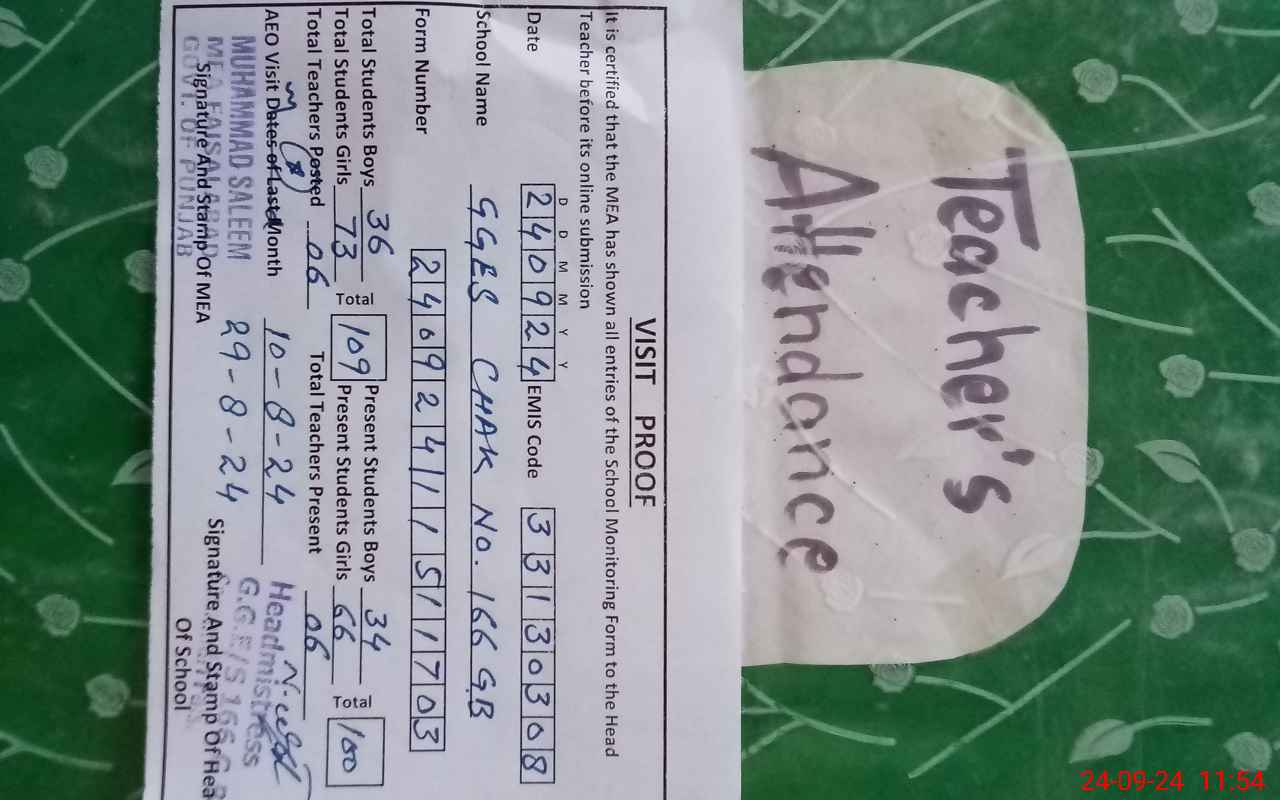 Teacher's
Attendance
VISIT PROOF
It is certified that the MEA has shown all entries of the School Monitoring Form to the Head
Teacher before its online submission
D D M M Y Y
Date 240924 EMIS Code 33130308
School Name GGES CHAK No. 166 GB
Form Number 24092411511703
Total Students Boys 36 Present Students Boys 34
Total Students Girls 73 Total 109 Present Students Girls 66 Total 100
Total Teachers Posted 06 Total Teachers Present 06
AEO Visit Dates of Last Month 10-8-24
29-8-24
MUHAMMAD SALEEM
MEA FAISALABAD
GOVT. OF PUNJAB
Signature And Stamp Of MEA
Headmistress
G.G.E/S 166 G.B
Signature And Stamp Of Hea
Of School
24-09-24 11:54